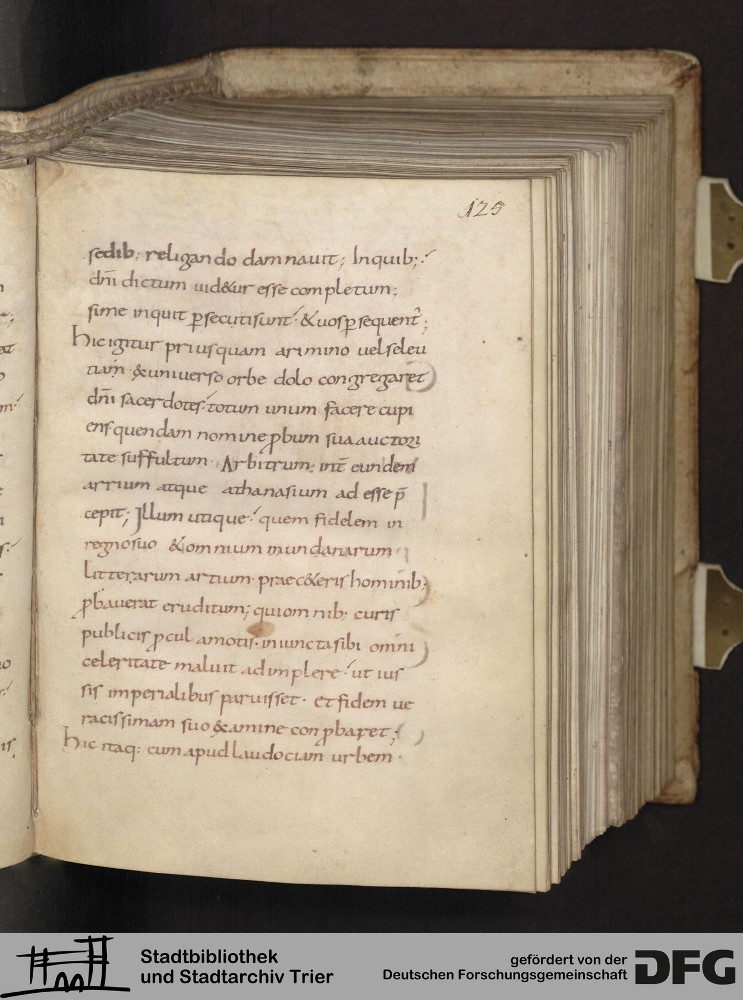 125
sedib; religando damnauit; Inquib;
dñi dictum uid&ur esse completum;
sime inquit psecutisunt · &uospsequent̃;
hicigitur priusquam arimino uelseleu
tiam · &uniuerso orbe dolo congregar&
dñi sacerdotes · totum unum facere cupi
ens quendam nomine pbum suaauctori
tate suffultum · Arbitrum; int̃ eundem
arrium atque athanasium ad esse p̃
cepit; Illum utique quem fidelem in
regnosuo &omnium mundanarum
litterarum artium · praec&eris hominib;
pbauerat eruditum; quiomnib; curis
publicis pcul amotis · iniunctasibi omni
celeritate maluit adimplere · ut ius
sis imperialibus paruisset · et fidem ue
racissimam suo examine conpbaret;
hic itaq; cum apud laudociam urbem ·
Stadtbibliothek
und Stadtarchiv Trier
gefördert von der
Deutschen Forschungsgemeinschaft
DFG